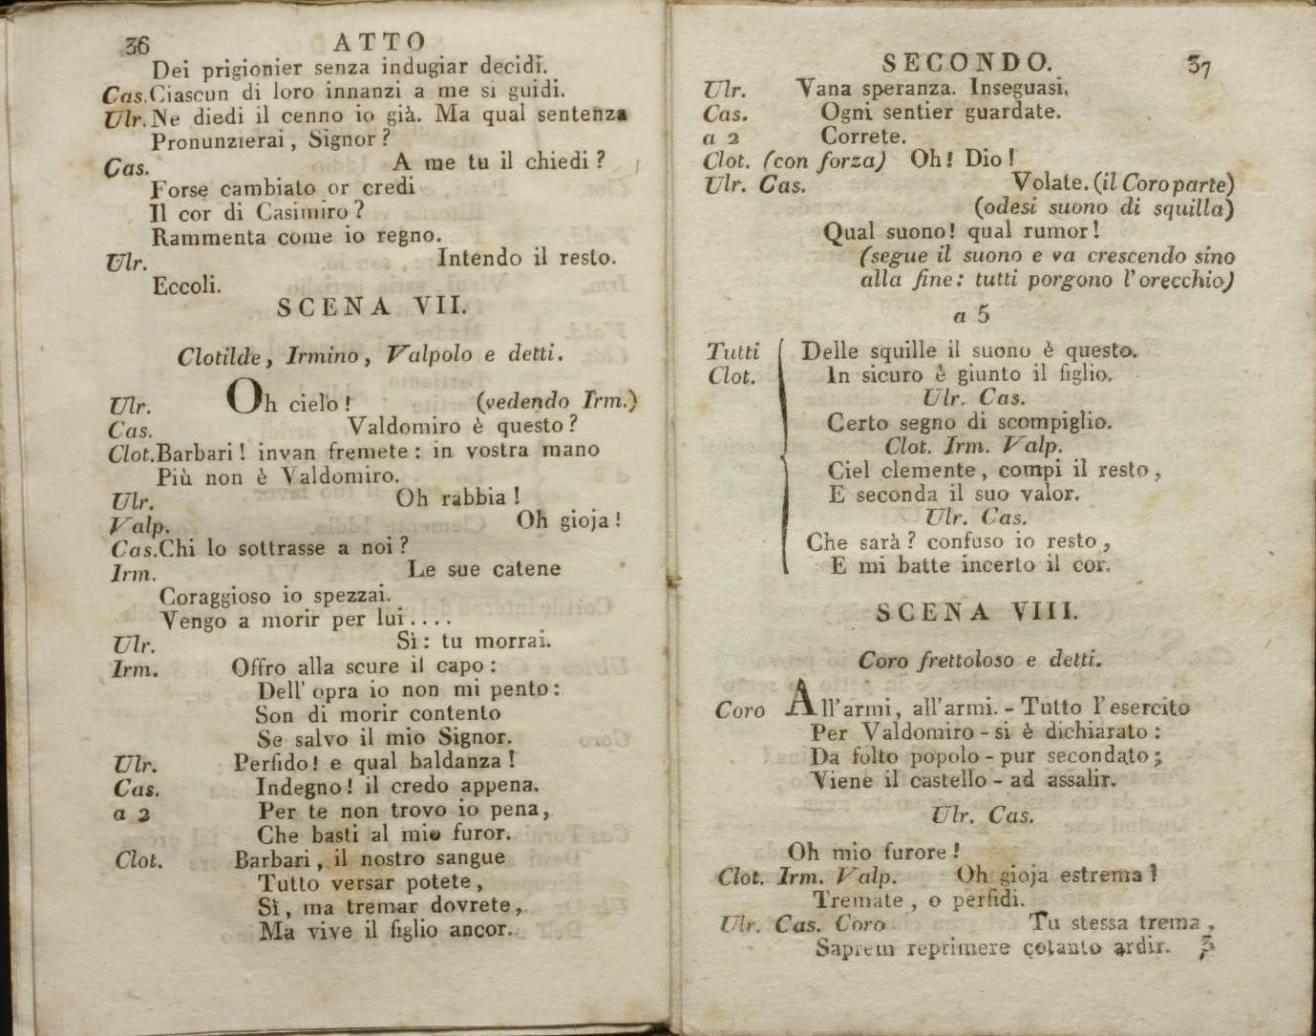 36 ATTO
Dei prigionier senza indugiar decidi.
Cas. Ciascun di loro innanzi a me si guidi.
Ulr. Ne diedi il cenno io già. Ma qual sentenza
Pronunzierai, Signor?
Cas. A me tu il chiedi?
Forse cambiato or credi
Il cor di Casimiro?
Rammenta come io regno.
Ulr. Intendo il resto.
Eccoli.
SCENA VII.
Clotilde, Irmino, Valpolo e detti.
Ulr. Oh cielo! (vedendo Irm.)
Cas. Valdomiro è questo?
Clot. Barbari! invan fremete: in vostra mano
Più non è Valdomiro.
Ulr. Oh rabbia!
Valp. Oh gioja!
Cas. Chi lo sottrasse a noi?
Irm. Le sue catene
Coraggioso io spezzai.
Vengo a morir per lui....
Ulr. Sì: tu morrai.
Irm. Offro alla scure il capo:
Dell' opra io non mi pento:
Son di morir contento
Se salvo il mio Signor.
Ulr. Perfido! e qual baldanza!
Cas. Indegno! il credo appena.
a 2 Per te non trovo io pena,
Che basti al mio furor.
Clot. Barbari, il nostro sangue
Tutto versar potete,
Sì, ma tremar dovrete,
Ma vive il figlio ancor.
SECONDO. 37
Ulr. Vana speranza. Inseguasi,
Cas. Ogni sentier guardate.
a 2 Correte.
Clot. (con forza) Oh! Dio!
Ulr. Cas. Volate. (il Coro parte)
(odesi suono di squilla)
Qual suono! qual rumor!
(segue il suono e va crescendo sino
alla fine: tutti porgono l'orecchio)
a 5
Tutti Delle squille il suono è questo.
Clot. In sicuro è giunto il figlio.
Ulr. Cas.
Certo segno di scompiglio.
Clot. Irm. Valp.
Ciel clemente, compi il resto,
E seconda il suo valor.
Ulr. Cas.
Che sarà? confuso io resto,
E mi batte incerto il cor.
SCENA VIII.
Coro frettoloso e detti.
Coro All'armi, all'armi. - Tutto l'esercito
Per Valdomiro - si è dichiarato:
Da folto popolo - pur secondato;
Viene il castello - ad assalir.
Ulr. Cas.
Oh mio furore!
Clot. Irm. Valp. Oh gioja estrema!
Tremate, o perfidi.
Ulr. Cas. Coro Tu stessa trema,
Saprem reprimere cotanto ardir. 3